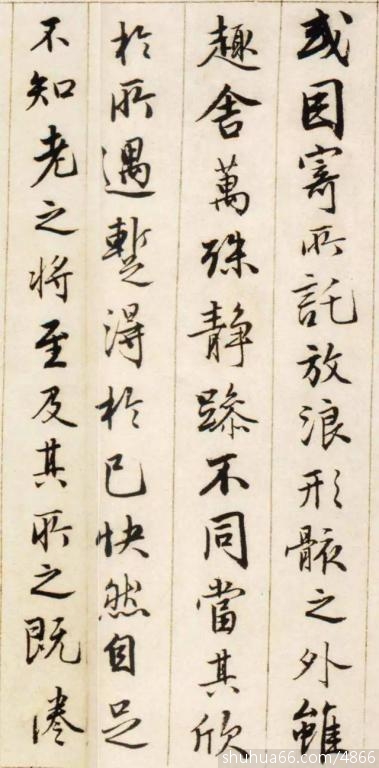 或因寄所託放浪形骸之外雖
趣舍萬殊静躁不同當其欣
於所遇蹔得於己快然自足
不知老之将至及其所之既惓
shuhua66.com/4866